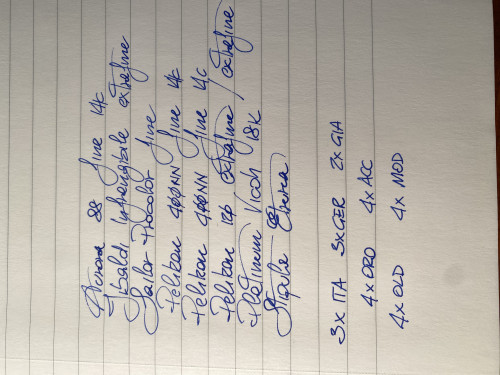 Aurora 88 fine 14K
Tibaldi Infrangibile extrafine
Sailor Procolor fine
Pelikan 400NN fine 14K
Pelikan 400NN fine 14C
Pelikan 120 extrafine / extrafine
Platinum 18K
Stipula Etruria
3x ITA 3xGER 2x GIA
4x ORO 4x ACC
4x OLD 4x MOD